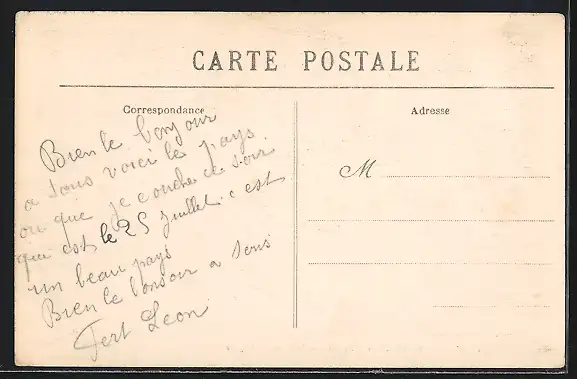 CARTE POSTALE
Correspondance
Adresse
M
Bien le bonjour
a tous voici le pays
ou que je couche ce soir
qui est le 25 juillet c est
un beau pays
Bien le bonsoir a tous
Fert Leon